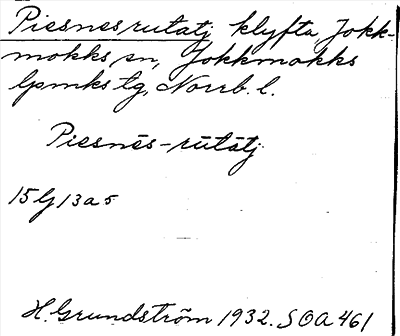 Piesnesrutatj klyfta, Jokk-
mokks sn, Jokkmokks
lpmks tg, Norrb. l.
Piesnēs-rūtátj
15 G 13 a 5
H. Grundström 1932. SOA 461